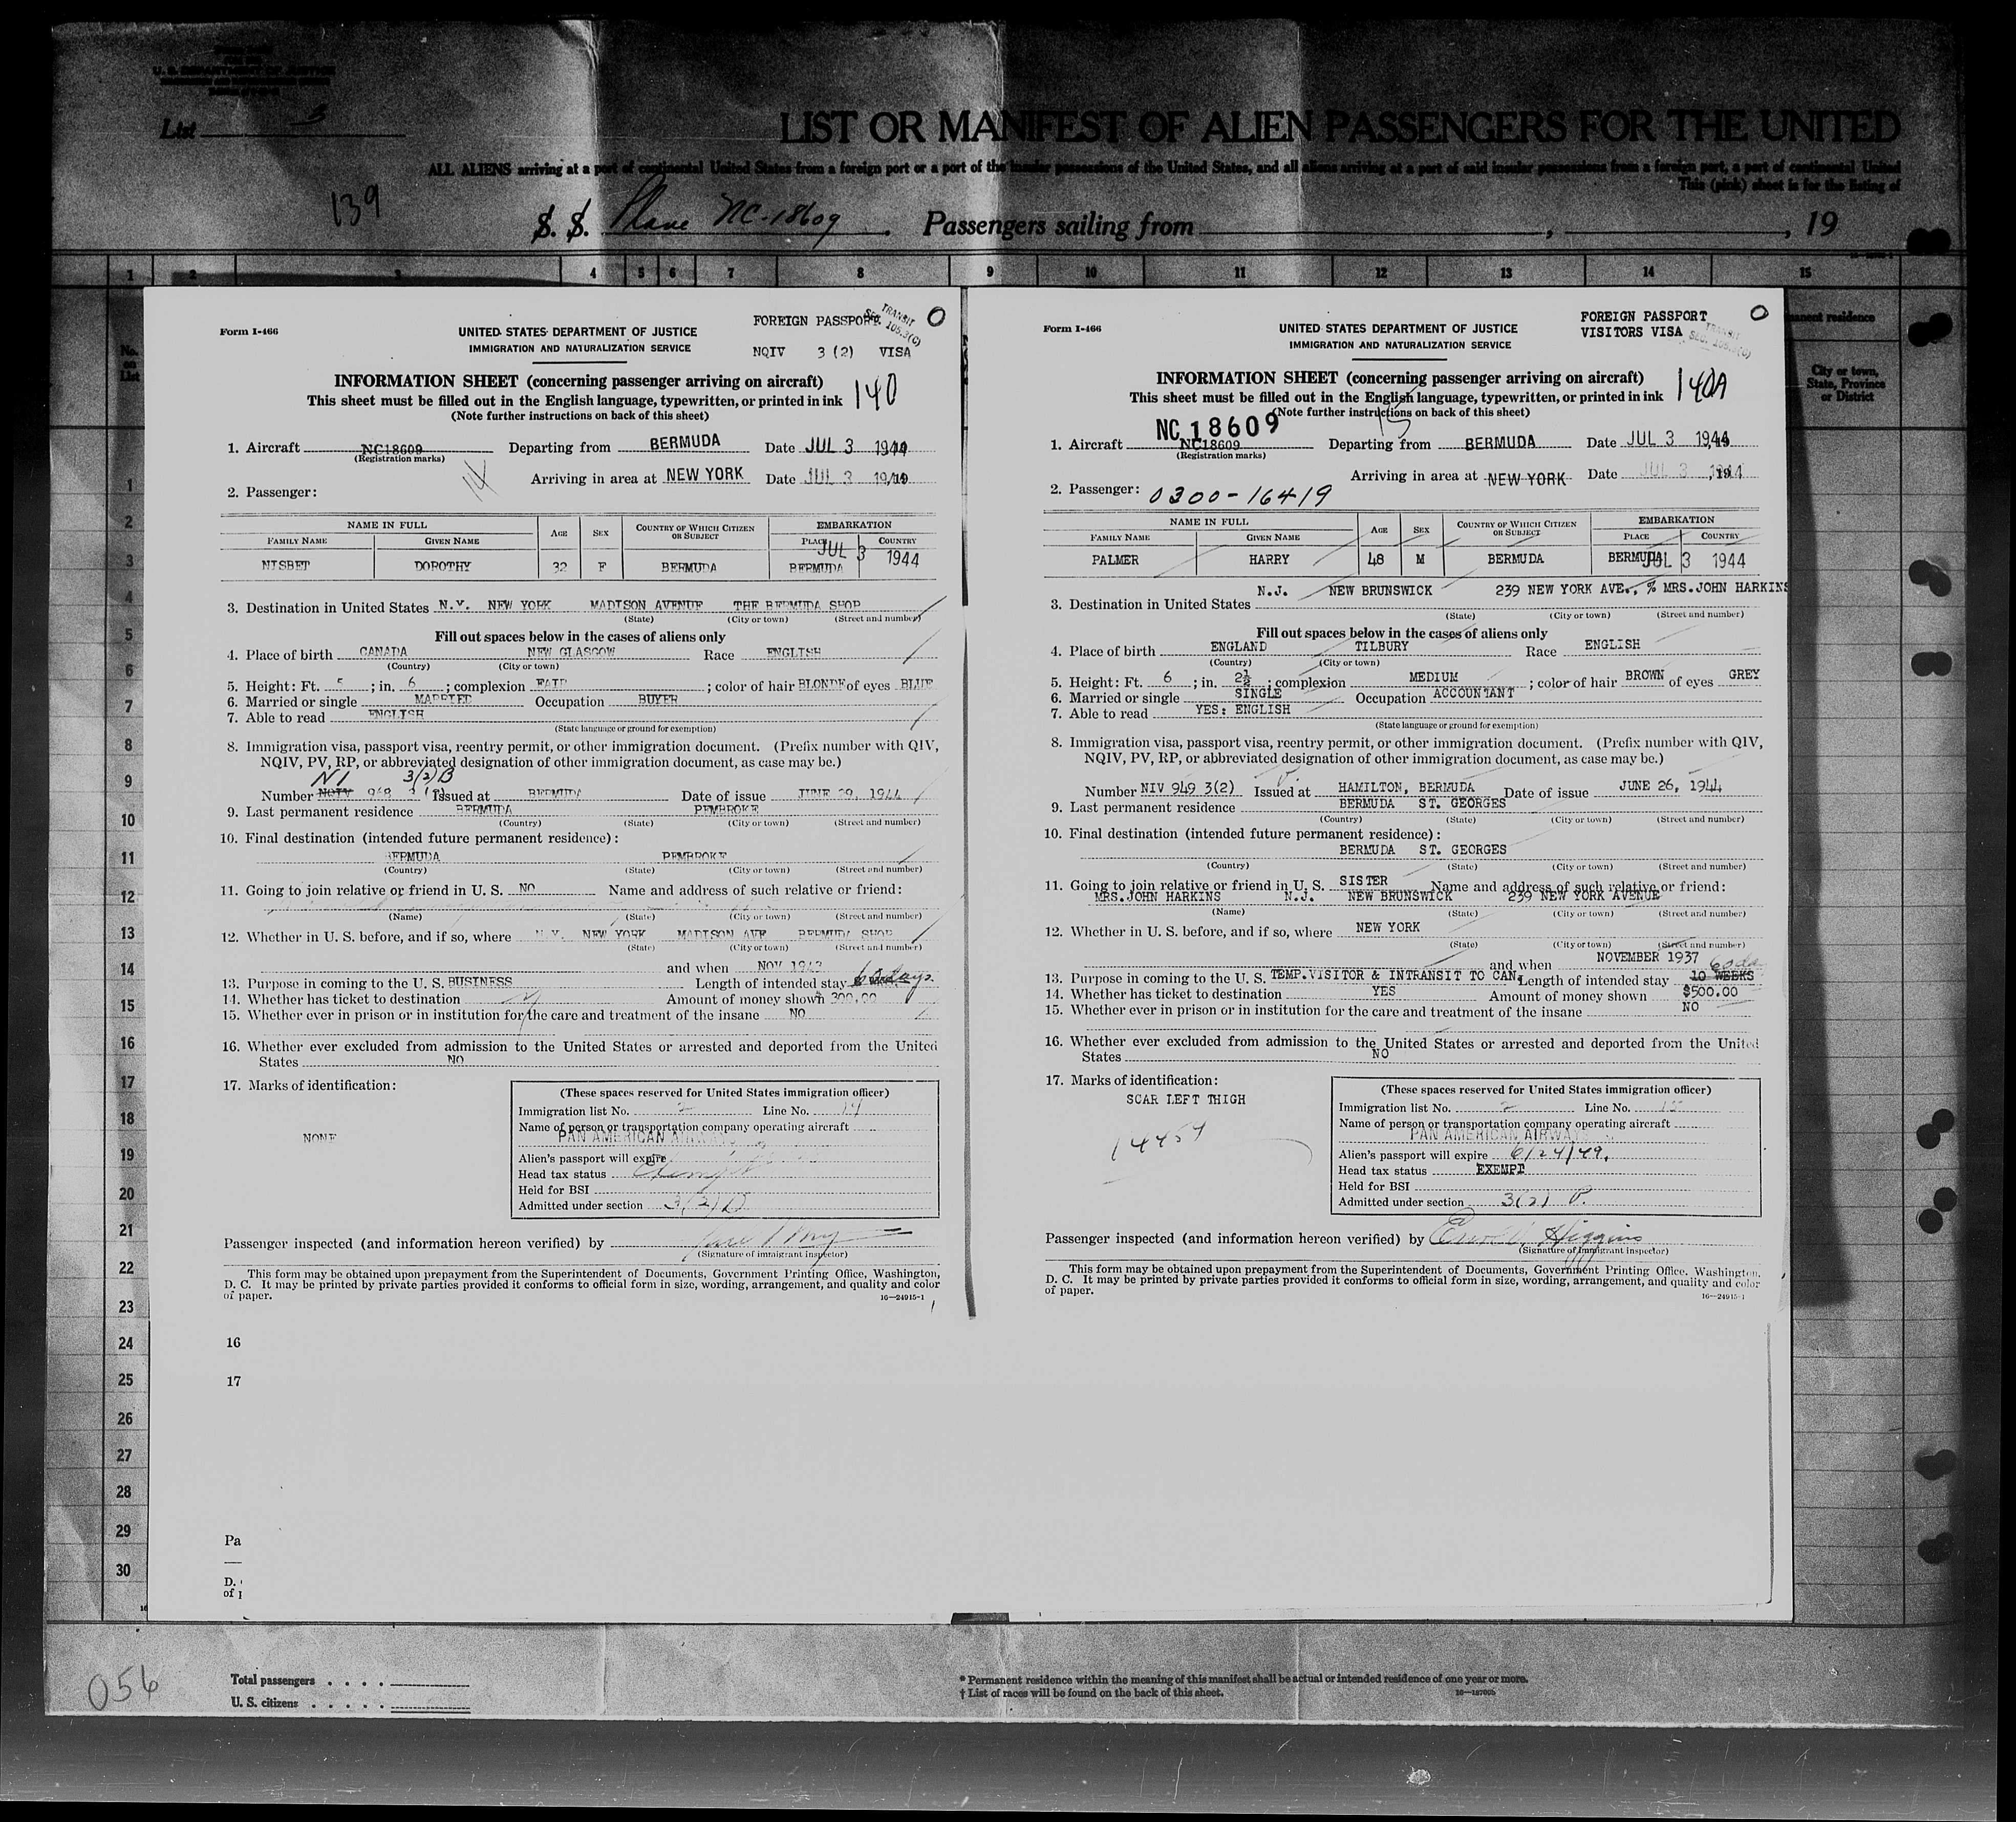 U. S. DEPARTMENT OF JUSTICE
List 3
LIST OR MANIFEST OF ALIEN PASSENGERS FOR THE UNITED
ALL ALIENS arriving at a port of continental United States from a foreign port or a port of the insular possessions of the United States, and all aliens arriving at a port of said insular possessions from a foreign port, a port of continental United
This (pink) sheet is for the listing of
139
S. S. Plane NC-18609. Passengers sailing from , , 19
1 2 3 4 5 6 7 8 9 10 11 12 13 14 15
No. on List
manent residence
City or town, State, Province or District
Form I-466
FOREIGN PASSPORT
TRANSIT
SEC. 105.3(C)
0
UNITED STATES DEPARTMENT OF JUSTICE
IMMIGRATION AND NATURALIZATION SERVICE
NQIV 3 (2) VISA
INFORMATION SHEET (concerning passenger arriving on aircraft)
140
This sheet must be filled out in the English language, typewritten, or printed in ink
(Note further instructions on back of this sheet)
1. Aircraft NC18609 Departing from BERMUDA Date JUL 3 1944
(Registration marks)
14
Arriving in area at NEW YORK Date JUL 3 1944
2. Passenger:
NAME IN FULL AGE SEX COUNTRY OF WHICH CITIZEN OR SUBJECT EMBARKATION
FAMILY NAME GIVEN NAME PLACE COUNTRY
JUL 3 1944
NISBET DOROTHY 32 F BERMUDA BERMUDA
3. Destination in United States N.Y. NEW YORK MADISON AVENUE THE BERMUDA SHOP
(State) (City or town) (Street and number)
Fill out spaces below in the cases of aliens only
4. Place of birth CANADA NEW GLASGOW Race ENGLISH
(Country) (City or town)
5. Height: Ft. 5 ; in. 6 ; complexion FAIR ; color of hair BLONDE of eyes BLUE
6. Married or single MARRIED Occupation BUYER
7. Able to read ENGLISH
(State language or ground for exemption)
8. Immigration visa, passport visa, reentry permit, or other immigration document. (Prefix number with QIV,
NQIV, PV, RP, or abbreviated designation of other immigration document, as case may be.)
NI 3/2/B
Number NQIV 948 Issued at BERMUDA Date of issue JUNE 29, 1944
9. Last permanent residence BERMUDA PEMBROKE
(Country) (State) (City or town) (Street and number)
10. Final destination (intended future permanent residence):
BERMUDA PEMBROKE
(Country) (State) (City or town) (Street and number)
11. Going to join relative or friend in U. S. NO Name and address of such relative or friend:
(Name) (State) (City or town) (Street and number)
12. Whether in U. S. before, and if so, where N.Y. NEW YORK MADISON AVE BERMUDA SHOP
(State) (City or town) (Street and number)
and when NOV 1943
13. Purpose in coming to the U. S. BUSINESS Length of intended stay 60 days
14. Whether has ticket to destination Amount of money shown 300.00
15. Whether ever in prison or in institution for the care and treatment of the insane NO
16. Whether ever excluded from admission to the United States or arrested and deported from the United
States NO
17. Marks of identification:
NONE
(These spaces reserved for United States immigration officer)
Immigration list No. 2 Line No. 14
Name of person or transportation company operating aircraft
PAN AMERICAN AIRWAYS
Alien's passport will expire
Head tax status Exempt
Held for BSI
Admitted under section 3(2)
Passenger inspected (and information hereon verified) by
(Signature of immigrant inspector)
This form may be obtained upon prepayment from the Superintendent of Documents, Government Printing Office, Washington,
D. C. It may be printed by private parties provided it conforms to official form in size, wording, arrangement, and quality and color
of paper.
16—24915-1
16
17
Pa
D.
of
Form I-466
FOREIGN PASSPORT
VISITORS VISA
TRANSIT
SEC. 105.3(C)
0
UNITED STATES DEPARTMENT OF JUSTICE
IMMIGRATION AND NATURALIZATION SERVICE
INFORMATION SHEET (concerning passenger arriving on aircraft)
140A
This sheet must be filled out in the English language, typewritten, or printed in ink
(Note further instructions on back of this sheet)
NC 18609
15
1. Aircraft NC18609 Departing from BERMUDA Date JUL 3 1944
(Registration marks)
Arriving in area at NEW YORK Date JUL 3 1944
2. Passenger: 0300-16419
NAME IN FULL AGE SEX COUNTRY OF WHICH CITIZEN OR SUBJECT EMBARKATION
FAMILY NAME GIVEN NAME PLACE COUNTRY
PALMER HARRY 48 M BERMUDA BERMUDA JUL 3 1944
N.J. NEW BRUNSWICK 239 NEW YORK AVE., % MRS.JOHN HARKINS
3. Destination in United States
(State) (City or town) (Street and number)
Fill out spaces below in the cases of aliens only
4. Place of birth ENGLAND TILBURY Race ENGLISH
(Country) (City or town)
5. Height: Ft. 6 ; in. 2½ ; complexion MEDIUM ; color of hair BROWN of eyes GREY
6. Married or single SINGLE Occupation ACCOUNTANT
7. Able to read YES: ENGLISH
(State language or ground for exemption)
8. Immigration visa, passport visa, reentry permit, or other immigration document. (Prefix number with QIV,
NQIV, PV, RP, or abbreviated designation of other immigration document, as case may be.)
Number NIV 949 3(2) Issued at HAMILTON, BERMUDA Date of issue JUNE 26, 1944
9. Last permanent residence BERMUDA ST. GEORGES
(Country) (State) (City or town) (Street and number)
10. Final destination (intended future permanent residence):
BERMUDA ST. GEORGES
(Country) (State) (City or town) (Street and number)
11. Going to join relative or friend in U. S. SISTER Name and address of such relative or friend:
MRS.JOHN HARKINS N.J. NEW BRUNSWICK 239 NEW YORK AVENUE
(Name) (State) (City or town) (Street and number)
12. Whether in U. S. before, and if so, where NEW YORK
(State) (City or town) (Street and number)
and when NOVEMBER 1937
13. Purpose in coming to the U. S. TEMP.VISITOR & INTRANSIT TO CAN. Length of intended stay 10 WEEKS 60 da
14. Whether has ticket to destination YES Amount of money shown $500.00
15. Whether ever in prison or in institution for the care and treatment of the insane NO
16. Whether ever excluded from admission to the United States or arrested and deported from the United
States NO
17. Marks of identification:
SCAR LEFT THIGH
14454
(These spaces reserved for United States immigration officer)
Immigration list No. 2 Line No. 15
Name of person or transportation company operating aircraft
PAN AMERICAN AIRWAYS
Alien's passport will expire 6/24/49.
Head tax status EXEMPT
Held for BSI
Admitted under section 3(2) P.
Passenger inspected (and information hereon verified) by Higgins
(Signature of immigrant inspector)
This form may be obtained upon prepayment from the Superintendent of Documents, Government Printing Office, Washington,
D. C. It may be printed by private parties provided it conforms to official form in size, wording, arrangement, and quality and color
of paper.
16—24915-1
1
2
3
4
5
6
7
8
9
10
11
12
13
14
15
16
17
18
19
20
21
22
23
24
25
26
27
28
29
30
056
Total passengers . . . .
U. S. citizens . . . . .
* Permanent residence within the meaning of this manifest shall be actual or intended residence of one year or more.
† List of races will be found on the back of this sheet.